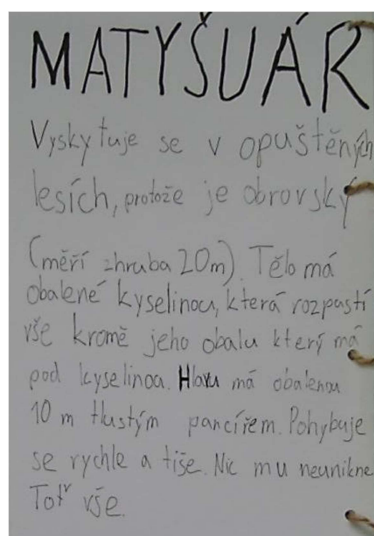 MATYŠUÁR
Vyskytuje se v opuštěných
lesích, protože je obrovský
(měří zhruba 20m). Tělo má
obalené kyselinou, která rozpastí
vše kromě jeho obalu který má
pod kyselinou. Hlavu má obalenou
10 m tlustým pancířem. Pohybuje
se rychle a tiše. Nic mu neunikne
Toť vše.